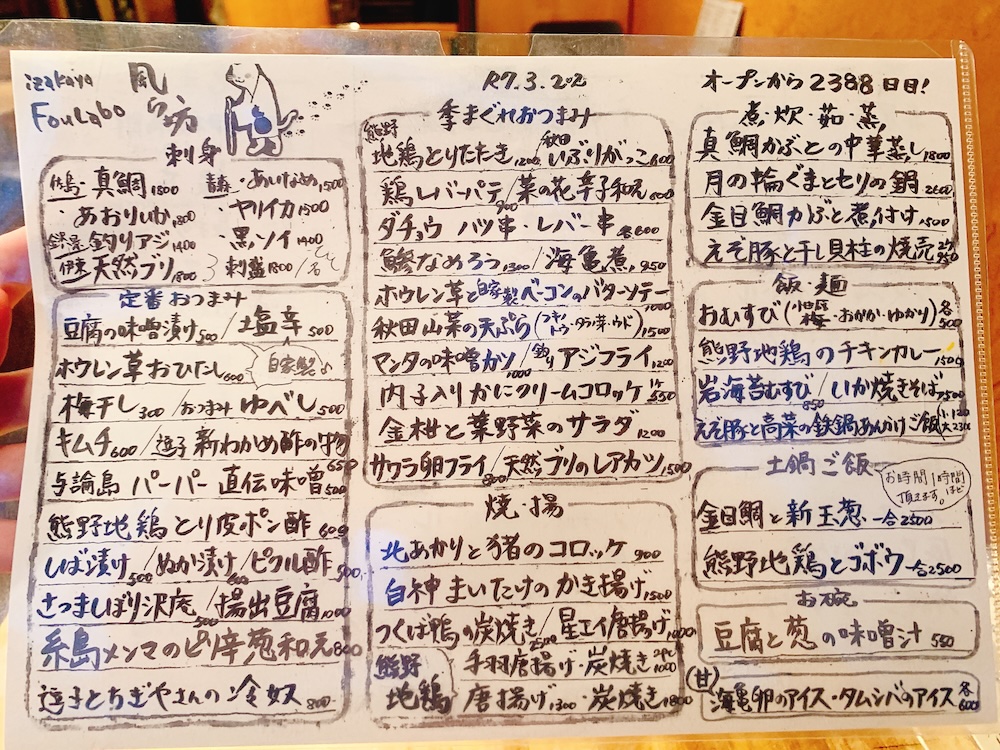 izakaya
FouLabo
風ら坊
R7.3.20
オープンから2388日目!
刺身
佐島・真鯛1800
・あおりいか1800
釣りアジ1400
伊東 天然ブリ1800
青森・あいなめ1500
・ヤリイカ1500
・黒ソイ1400
刺盛1800/名
定番おつまみ
豆腐の味噌漬け500/塩辛500
自家製♪
ホウレン草おひたし600
梅干し300/おつまみゆべし500
キムチ600/逗子新わかめ酢の物650
与論島 パーパー直伝味噌500
熊野地鶏とり皮ポン酢600
しば漬け500/ぬか漬け600/ピクル酢500
さつましぼり沢庵500/揚出豆腐1000
糸島メンマのピリ辛葱和え800
逗子とちぎやさんの冷奴800
季まぐれおつまみ
熊野地鶏とりたたき1200 秋田いぶりがっこ600
鶏レバーパテ900/菜の花辛子和え800
ダチョウ ハツ串・レバー串各600
鯵なめろう1300/海亀煮950
ホウレン草と自家製ベーコンのバターソテー1000
秋田山菜の天ぷら(フキノトウ・タラの芽・ウド)1500
マンタの味噌カツ1000/釣りアジフライ1200
内子入りかにクリームコロッケ1ケ550
金柑と葉野菜のサラダ1200
サワラ卵フライ800/天然ブリのレアカツ1500
焼・揚
北あかりと猪のコロッケ900
白神まいたけのかき揚げ1500
つくば鴨の炭焼き2500/星エイ唐揚げ1000
熊野地鶏
手羽唐揚げ・炭焼き2pc1000
唐揚げ1300・炭焼き1800
煮・炊・茹・蒸
真鯛かぶとの中華蒸し1800
月の輪ぐまとセリの鍋2600
金目鯛かぶと煮付け1500
えぞ豚と干し貝柱の焼売2ケ950
飯・麺
おむすび(梅・おかか・ゆかり)各500
熊野地鶏のチキンカレー1500
岩海苔むすび850/いか焼きそば1500
えぞ豚と高菜の鉄鍋あんかけご飯
土鍋ご飯
お時間1時間ほど頂きます。
金目鯛と新玉葱 一合2500
熊野地鶏とゴボウ 一合2500
お碗
豆腐と葱の味噌汁550
(甘)
海亀卵のアイス・タムシバのアイス各600